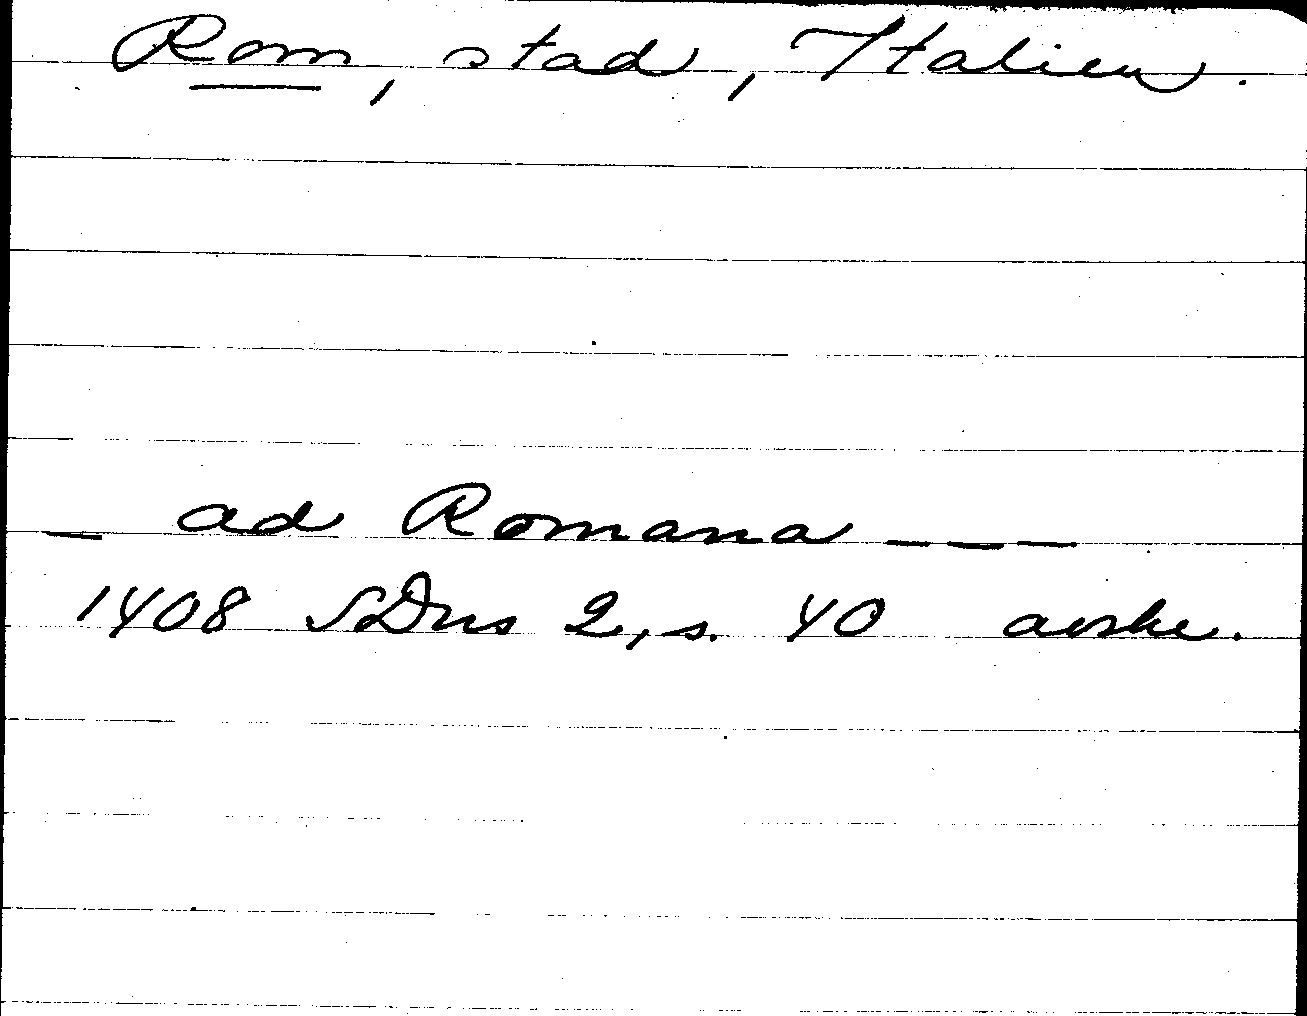 Rom, stad, Italien.
_ ad Romana _ _ _
1408 SDns 2, s. 40 avskr.